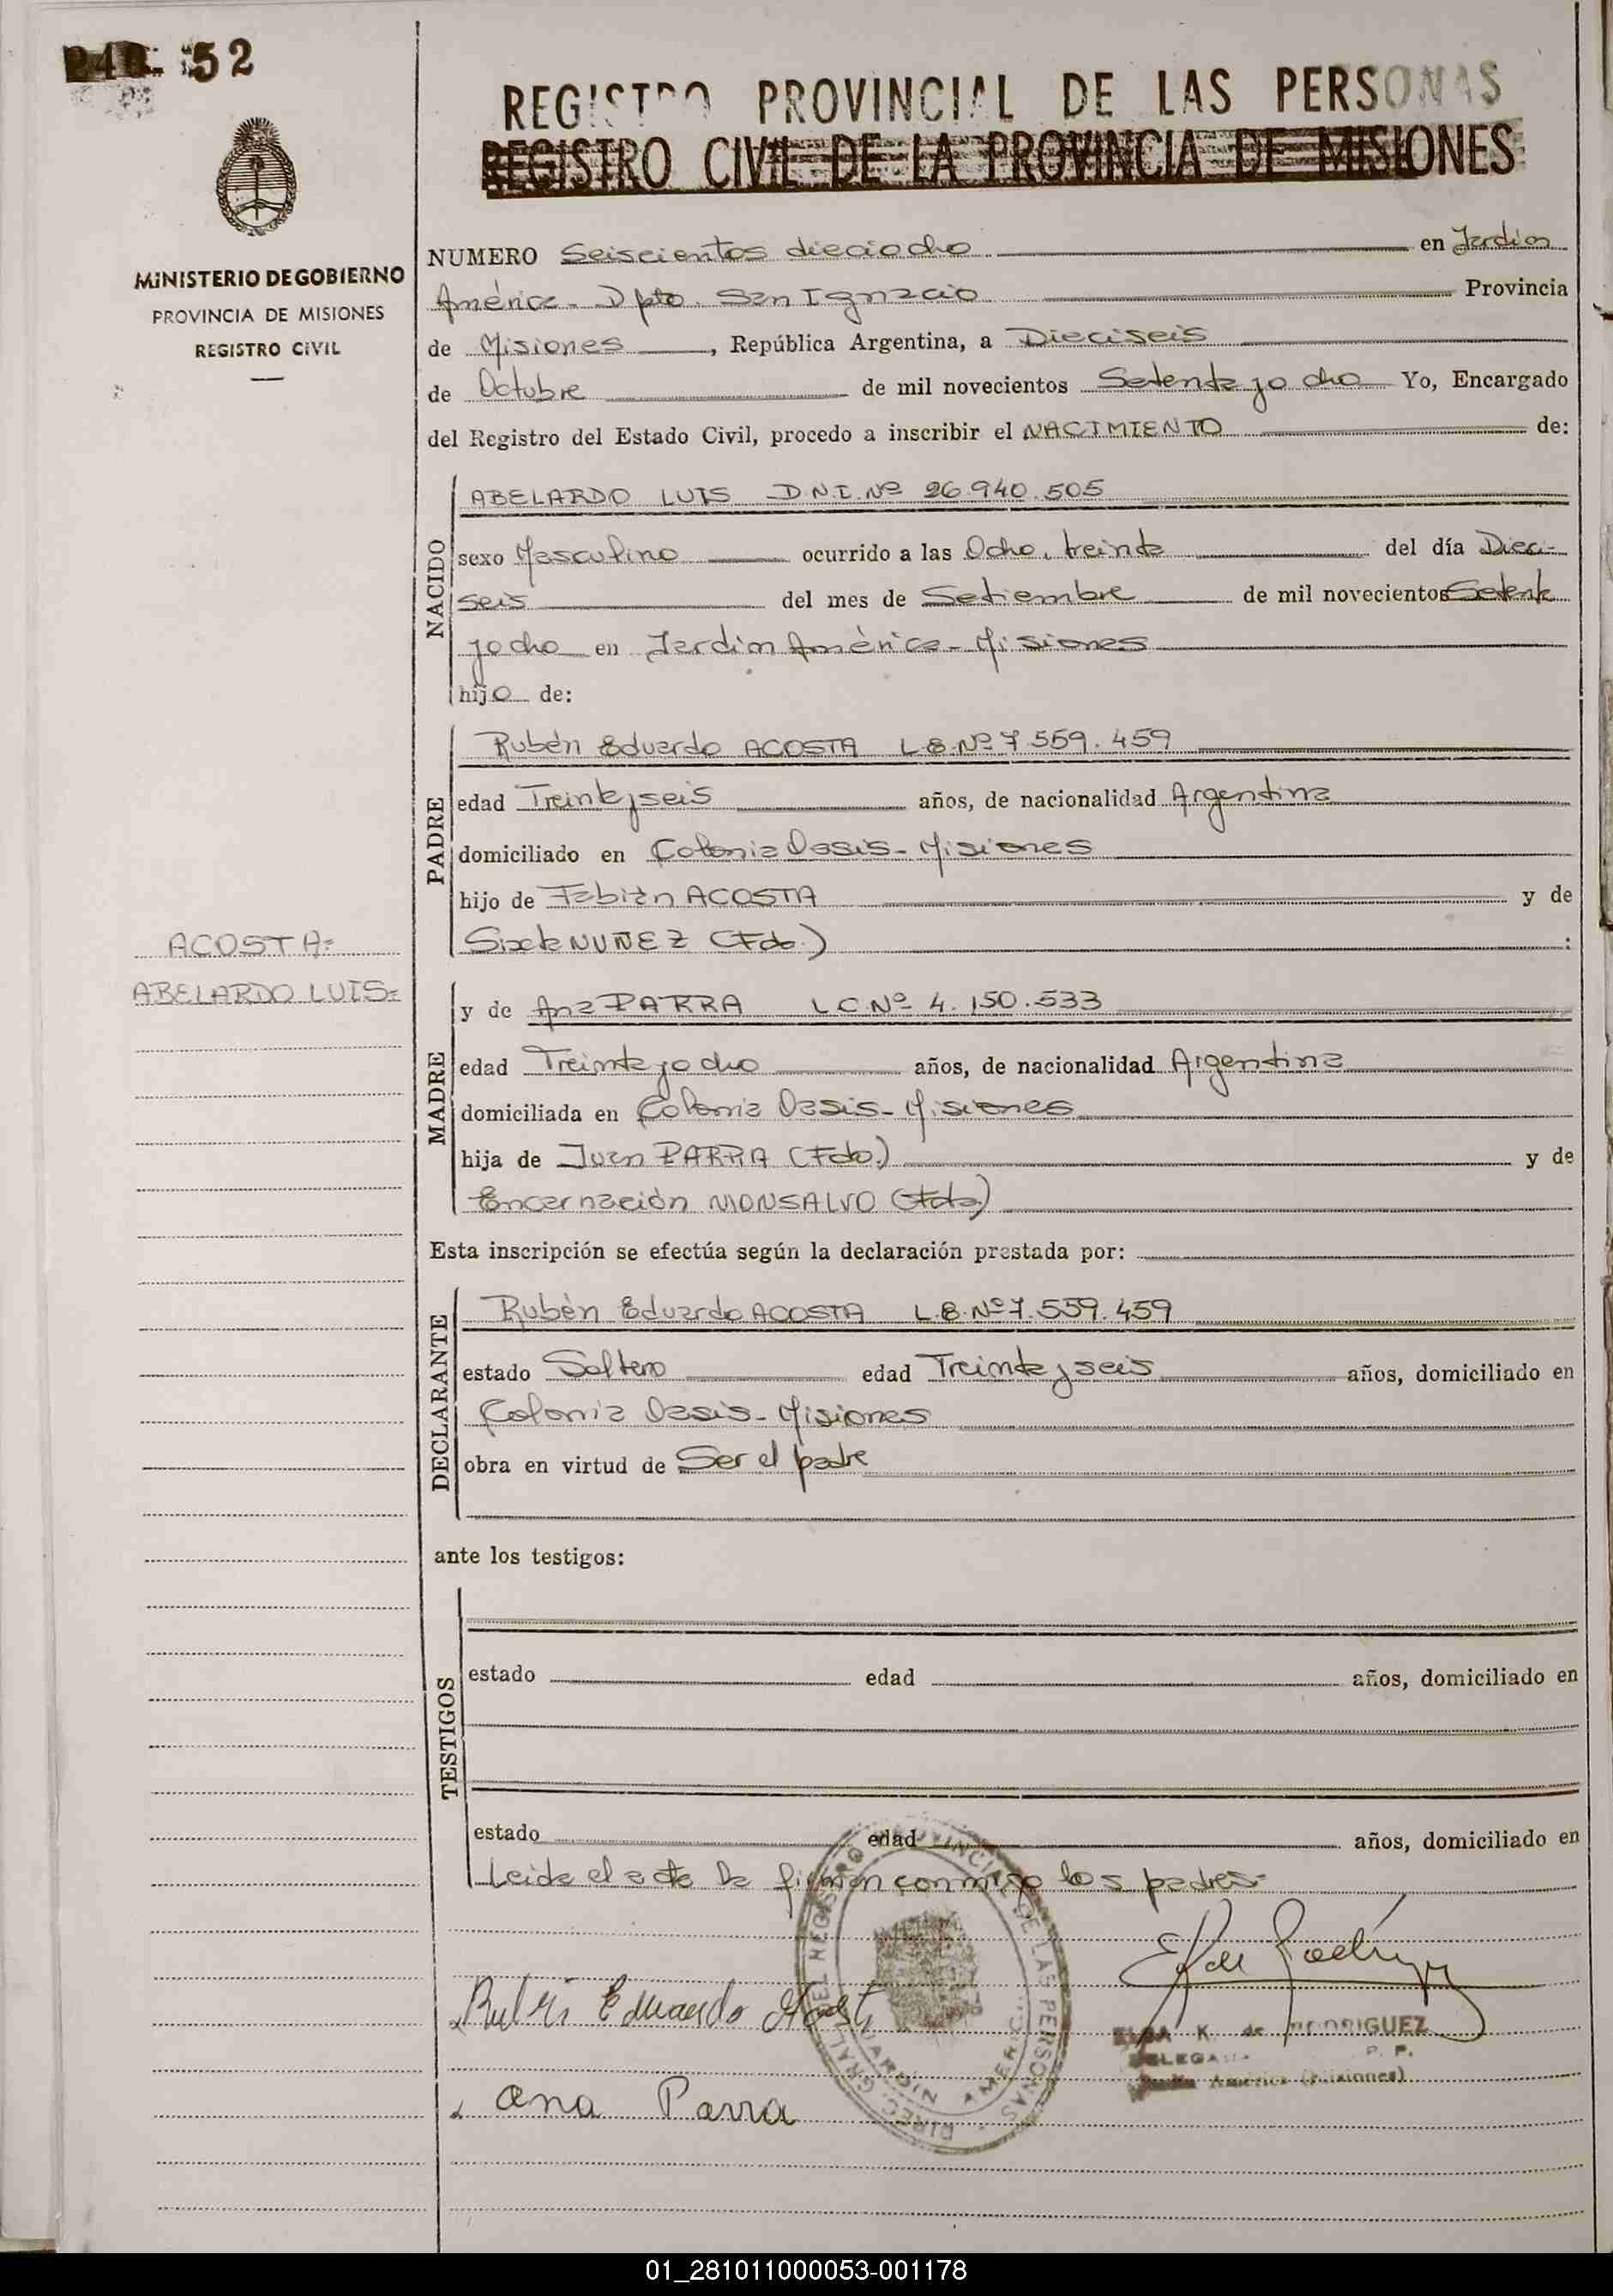 PAG. 52
REGISTRO PROVINCIAL DE LAS PERSONAS
REGISTRO CIVIL DE LA PROVINCIA DE MISIONES
MINISTERIO DE GOBIERNO
PROVINCIA DE MISIONES
REGISTRO CIVIL
NUMERO Seiscientos dieciocho en Jardín
América - Dpto. San Ignacio Provincia
de Misiones, República Argentina, a Dieciseis
de Octubre de mil novecientos Setenta y ocho Yo, Encargado
del Registro del Estado Civil, procedo a inscribir el NACIMIENTO de:
NACIDO
ABELARDO LUIS - D.N.I. Nº 26.940.505
sexo Masculino ocurrido a las Ocho, treinta del día Dieci-
seis del mes de Setiembre de mil novecientos Setenta
y ocho en Jardín América - Misiones
hijo de:
PADRE
Rubén Eduardo ACOSTA L.E. Nº 7.559.459
edad Treinta y seis años, de nacionalidad Argentina
domiciliado en Colonia Oasis - Misiones
hijo de Fabián ACOSTA y de
Sixta NUÑEZ (Fda.) :
ACOSTA=
ABELARDO LUIS=
MADRE
y de Ana PARRA L.C. Nº 4.150.533
edad Treinta y ocho años, de nacionalidad Argentina
domiciliada en Colonia Oasis - Misiones
hija de Juan PARRA (Fdo.) y de
Encarnación MONSALVO (Fda.)
Esta inscripción se efectúa según la declaración prestada por:
DECLARANTE
Rubén Eduardo ACOSTA L.E. Nº 7.559.459
estado Soltero edad Treinta y seis años, domiciliado en
Colonia Oasis - Misiones
obra en virtud de Ser el padre
ante los testigos:
TESTIGOS
estado edad años, domiciliado en
estado edad años, domiciliado en
Leida el acta la firman conmigo los padres.
Rubén Eduardo Acosta
Ana Parra
DIREC. GRAL. DEL REGISTRO PROVINCIAL DE LAS PERSONAS
JARDIN AMERICA
ELSA K. de RODRIGUEZ
DELEGADA R. P. P.
Jardín América (Misiones)
01_281011000053-001178